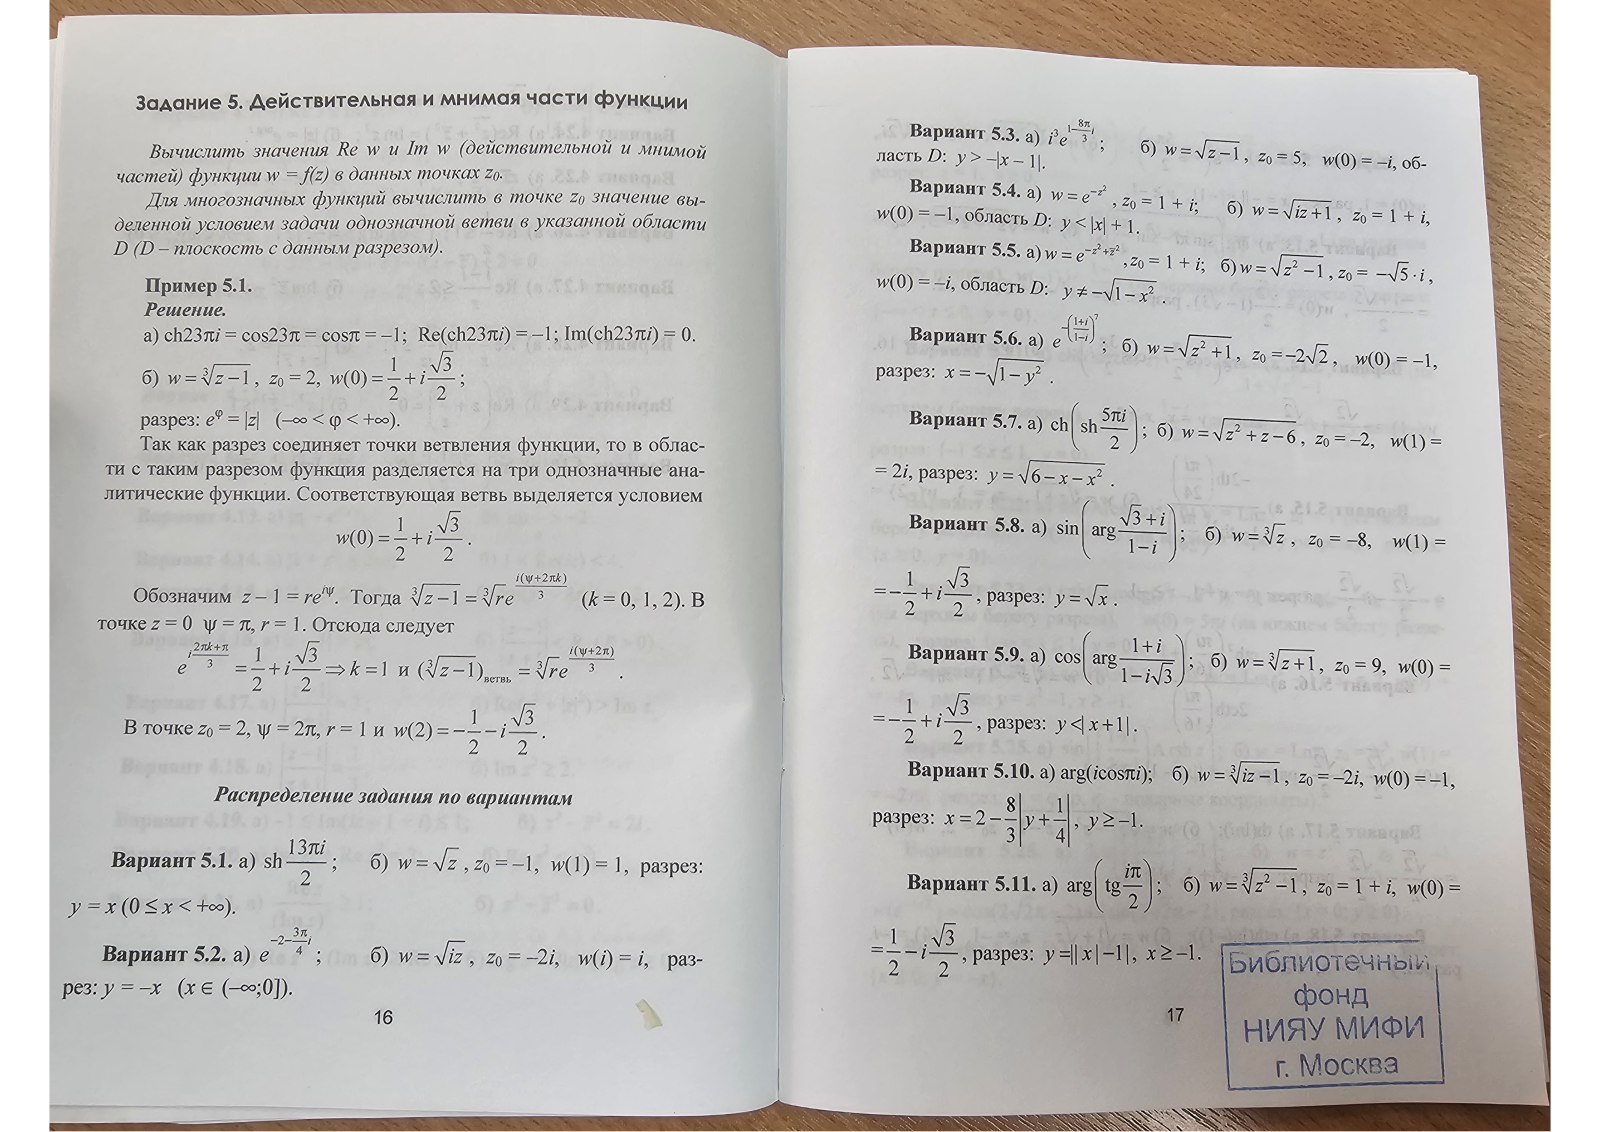 Задание 5. Действительная и мнимая части функции
Вычислить значения Re w и Im w (действительной и мнимой
частей) функции w = f(z) в данных точках z₀.
Для многозначных функций вычислить в точке z₀ значение вы-
деленной условием задачи однозначной ветви в указанной области
D (D – плоскость с данным разрезом).
Пример 5.1.
Решение.
а) ch23πi = cos23π = cosπ = –1; Re(ch23πi) = –1; Im(ch23πi) = 0.
б) w = ∛(z–1), z₀ = 2, w(0) = 1/2 + i √3/2;
разрез: e^φ = |z| (–∞ < φ < +∞).
Так как разрез соединяет точки ветвления функции, то в облас-
ти с таким разрезом функция разделяется на три однозначные ана-
литические функции. Соответствующая ветвь выделяется условием
w(0) = 1/2 + i √3/2.
Обозначим z – 1 = re^(iψ). Тогда ∛(z–1) = ∛r e^(i(ψ+2πk)/3) (k = 0, 1, 2). В
точке z = 0 ψ = π, r = 1. Отсюда следует
e^(i(2πk+π)/3) = 1/2 + i √3/2 ⇒ k = 1 и (∛(z–1))ветвь = ∛r e^(i(ψ+2π)/3).
В точке z₀ = 2, ψ = 2π, r = 1 и w(2) = –1/2 – i √3/2.
Распределение задания по вариантам
Вариант 5.1. а) sh 13πi/2; б) w = √z, z₀ = –1, w(1) = 1, разрез:
y = x (0 ≤ x < +∞).
Вариант 5.2. а) e^(–2–(3π/4)i); б) w = √(iz), z₀ = –2i, w(i) = i, раз-
рез: y = –x (x ∈ (–∞;0]).
16
Вариант 5.3. а) i³e^(1–(8π/3)i); б) w = √(z–1), z₀ = 5, w(0) = –i, об-
ласть D: y > –|x – 1|.
Вариант 5.4. а) w = e^(–z²), z₀ = 1 + i; б) w = √(iz+1), z₀ = 1 + i,
w(0) = –1, область D: y < |x| + 1.
Вариант 5.5. а) w = e^(–z²+z̄²), z₀ = 1 + i; б) w = √(z²–1), z₀ = –√5·i,
w(0) = –i, область D: y ≠ –√(1–x²).
Вариант 5.6. а) e^(–((1+i)/(1–i))⁷); б) w = √(z²+1), z₀ = –2√2, w(0) = –1,
разрез: x = –√(1–y²).
Вариант 5.7. а) ch(sh 5πi/2); б) w = √(z²+z–6), z₀ = –2, w(1) =
= 2i, разрез: y = √(6–x–x²).
Вариант 5.8. а) sin(arg (√3+i)/(1–i)); б) w = ∛z, z₀ = –8, w(1) =
= –1/2 + i √3/2, разрез: y = √x.
Вариант 5.9. а) cos(arg (1+i)/(1–i√3)); б) w = ∛(z+1), z₀ = 9, w(0) =
= –1/2 + i √3/2, разрез: y <|x+1|.
Вариант 5.10. а) arg(icosπi); б) w = ∛(iz–1), z₀ = –2i, w(0) = –1,
разрез: x = 2 – 8/3|y + 1/4|, y ≥ –1.
Вариант 5.11. а) arg(tg iπ/2); б) w = ∛(z²–1), z₀ = 1 + i, w(0) =
= 1/2 – i √3/2, разрез: y =||x|–1|, x ≥ –1.
17
Библиотечный
фонд
НИЯУ МИФИ
г. Москва